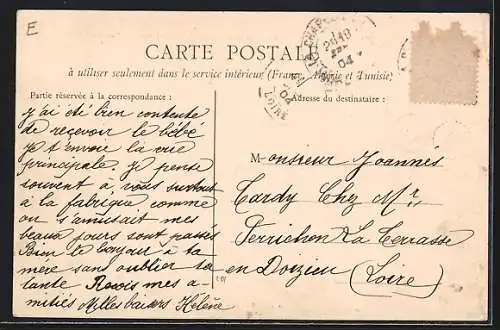 E
CARTE POSTALE
à utiliser seulement dans le service intérieur (France, Algérie et Tunisie)
Partie réservée à la correspondance :
J'ai été bien contente
de recevoir le bébé
Je t'envoie la vue
principale. Je pense
souvent à vous surtout
à la fabrique comme
on s'amusait mes
beaux jours sont passés
Bien le bonjour à ta
mère sans oublier ta
tante mes a-
mitiés Milles baisers Hélène
Adresse du destinataire :
Monsieur Joannès
Tardy Chez Mr
Perrichon La Terrasse
en Doizieu (Loire)
04
LOIRE
04